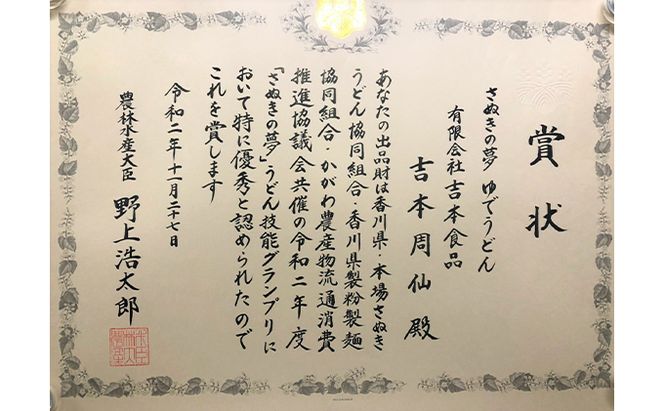 賞状
さぬきの夢 ゆでうどん
有限会社吉本食品
吉本周仙殿
あなたの出品財は香川県・本場さぬき
うどん協同組合・香川県製粉製麺
協同組合・かがわ農産物流通消費
推進協議会共催の令和二年度
「さぬきの夢」うどん技能グランプリに
おいて特に優秀と認められたので
これを賞します
令和二年十一月二十七日
農林水産大臣 野上浩太郎